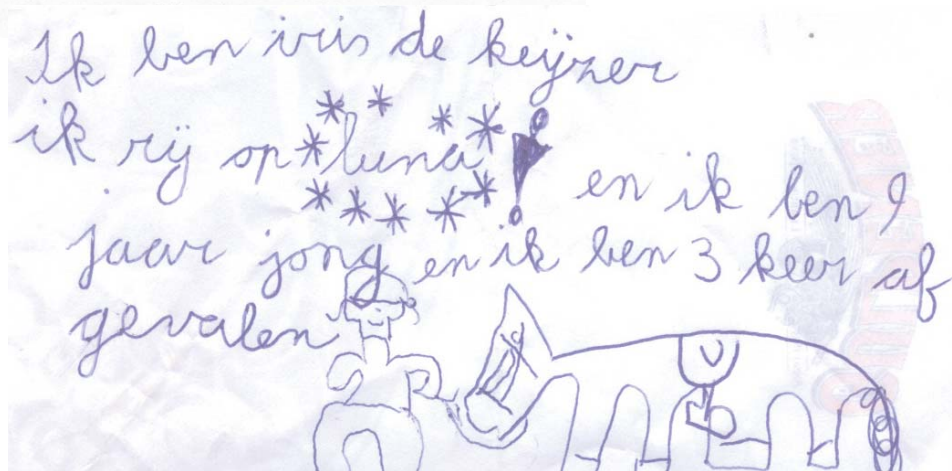 Ik ben iris de keijzer
ik rij op luna en ik ben 9
jaar jong en ik ben 3 keer af
gevalen